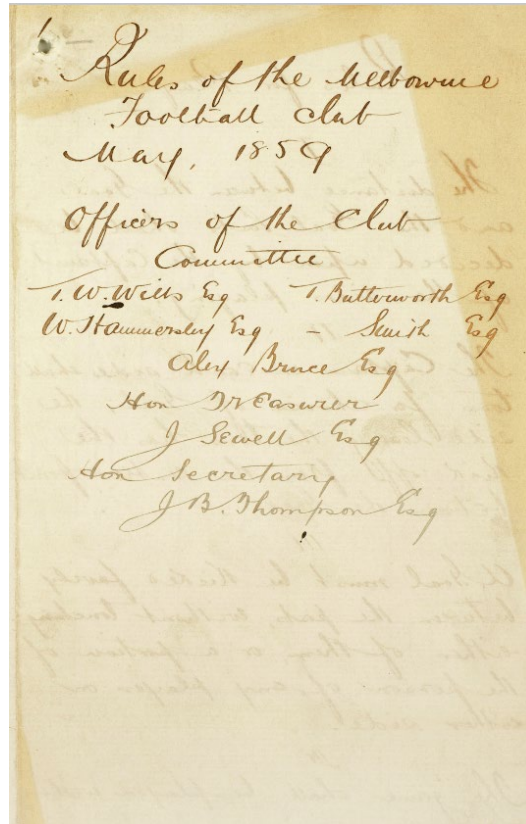 Rules of the Melbourne
Football Club
May, 1859
Officers of the Club
Committee
T. W. Wills Esq T. Butterworth Esq
W. Hammersley Esq – Smith Esq
Alex Bruce Esq
Hon Treasurer
J Sewell Esq
Hon Secretary
J B. Thompson Esq